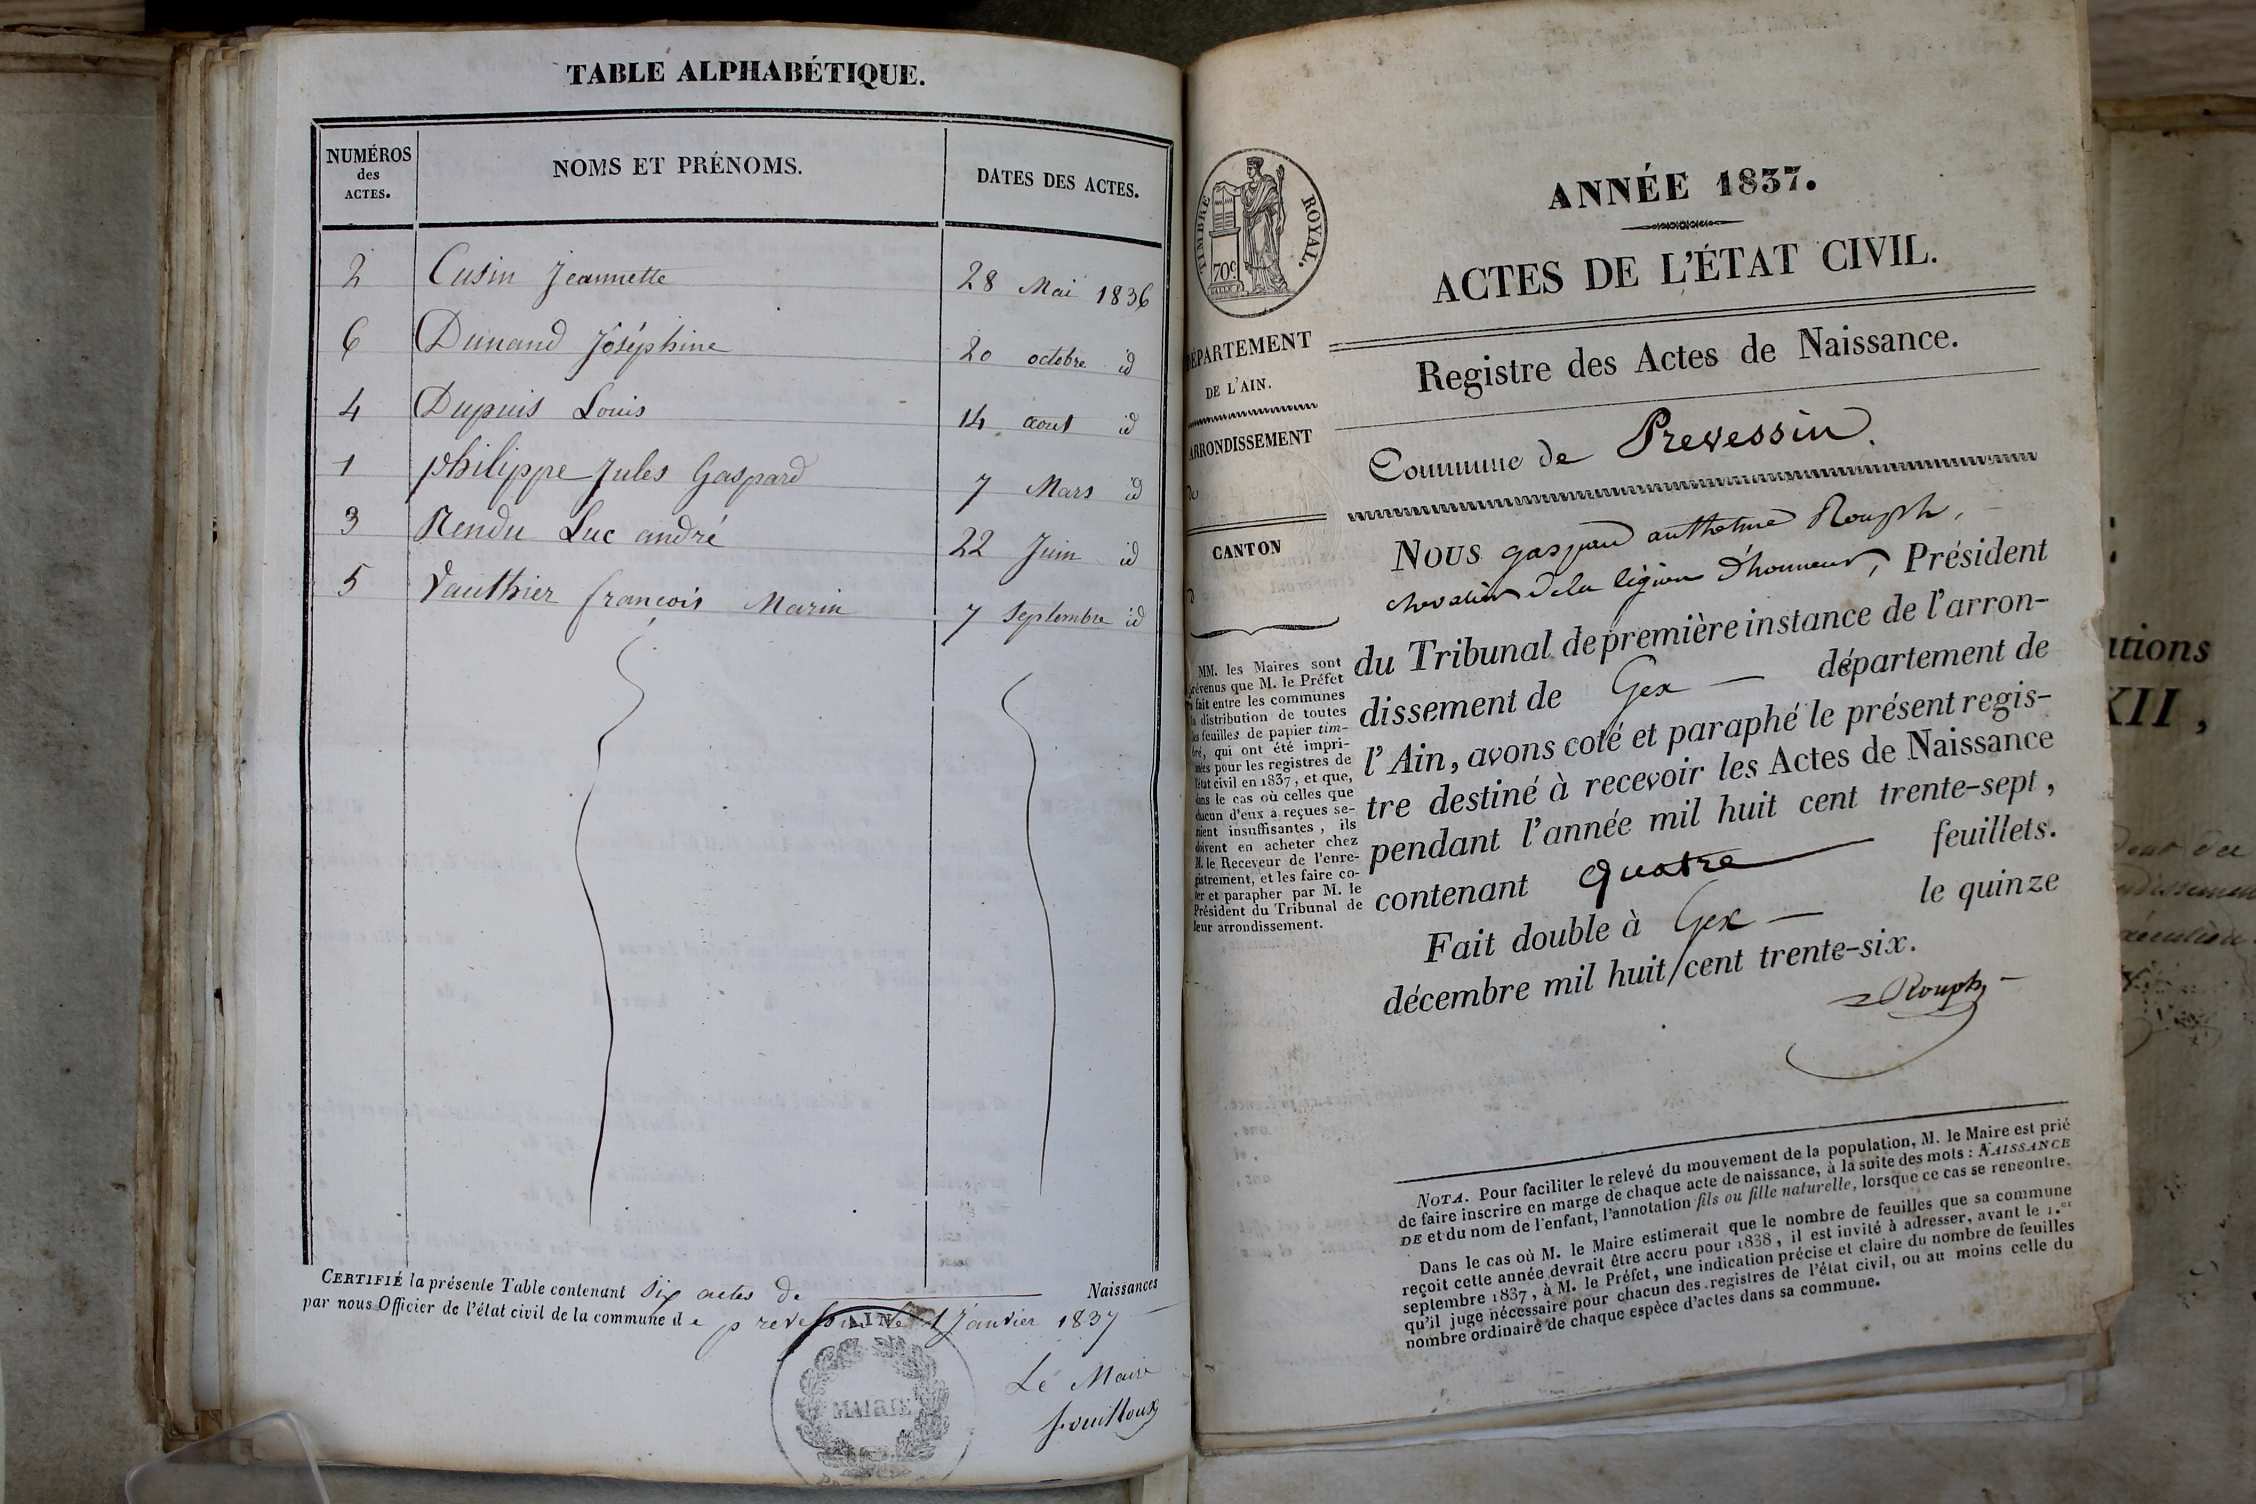 TABLE ALPHABÉTIQUE.
NUMÉROS des ACTES.
NOMS ET PRÉNOMS.
DATES DES ACTES.
2 Cusin Jeannette 28 Mai 1836
6 Dunand Joséphine 20 octobre id
4 Dupuis Louis 14 aout id
1 philippe Jules Gaspard 7 Mars id
3 Rendu Luc andré 22 Juin id
5 Vauthier françois Marin 7 Septembre id
CERTIFIÉ la présente Table contenant Six actes de Naissances
par nous Officier de l'état civil de la commune de prevessin le 1 Janvier 1837
AIN
MAIRIE
Le Maire
TIMBRE ROYAL.
70c
DÉPARTEMENT
DE L'AIN.
ARRONDISSEMENT
d
CANTON
d
MM. les Maires sont
prévenus que M. le Préfet
a fait entre les communes
la distribution de toutes
les feuilles de papier tim-
bré, qui ont été impri-
mées pour les registres de
l'état civil en 1837, et que,
dans le cas où celles que
chacun d'eux a reçues se-
raient insuffisantes, ils
doivent en acheter chez
M. le Receveur de l'enre-
gistrement, et les faire co-
ter et parapher par M. le
Président du Tribunal de
leur arrondissement.
ANNÉE 1837.
ACTES DE L'ÉTAT CIVIL.
Registre des Actes de Naissance.
Commune de Prevessin.
Nous gaspard anthelme Rouph,
chevalier de la légion d'honneur, Président
du Tribunal de première instance de l'arron-
dissement de Gex département de
l'Ain, avons coté et paraphé le présent regis-
tre destiné à recevoir les Actes de Naissance
pendant l'année mil huit cent trente-sept,
contenant quatre feuillets.
Fait double à Gex le quinze
décembre mil huit cent trente-six.
Rouph
NOTA. Pour faciliter le relevé du mouvement de la population, M. le Maire est prié
de faire inscrire en marge de chaque acte de naissance, à la suite des mots : NAISSANCE
DE et du nom de l'enfant, l'annotation fils ou fille naturelle, lorsque ce cas se rencontre.
Dans le cas où M. le Maire estimerait que le nombre de feuilles que sa commune
reçoit cette année devrait être accru pour 1838, il est invité à adresser, avant le 1.er
septembre 1837, à M. le Préfet, une indication précise et claire du nombre de feuilles
qu'il juge nécessaire pour chacun des registres de l'état civil, ou au moins celle du
nombre ordinaire de chaque espèce d'actes dans sa commune.
ations
XII,